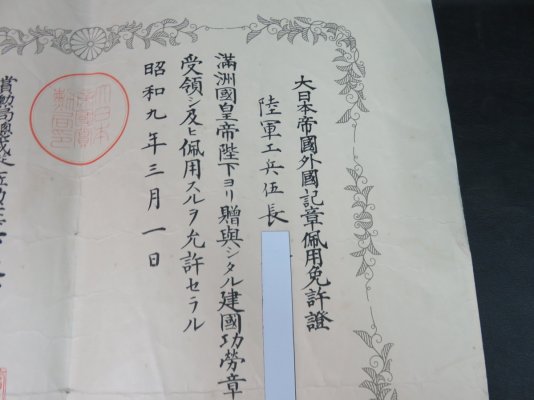 大日本帝國外國記章佩用免許證
陸軍工兵伍長
滿洲國皇帝陛下ヨリ贈與シタル建國功勞章
受領シ及ヒ佩用スルヲ允許セラル
昭和九年三月一日
賞勳局